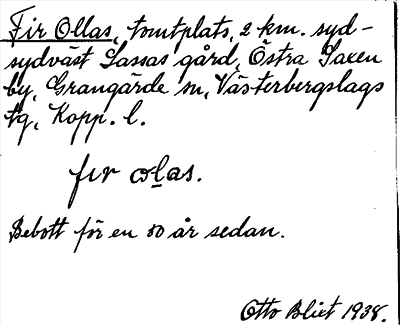 Fir Ollas, tomtplats, 2 km. syd-
sydväst Lassas gård, Östra Laxen
by, Grangärde sn, Västerbergslags
tg, Kopp. l.
fır ol̲as.
Bebott för en 80 år sedan.
Otto Blixt 1938.